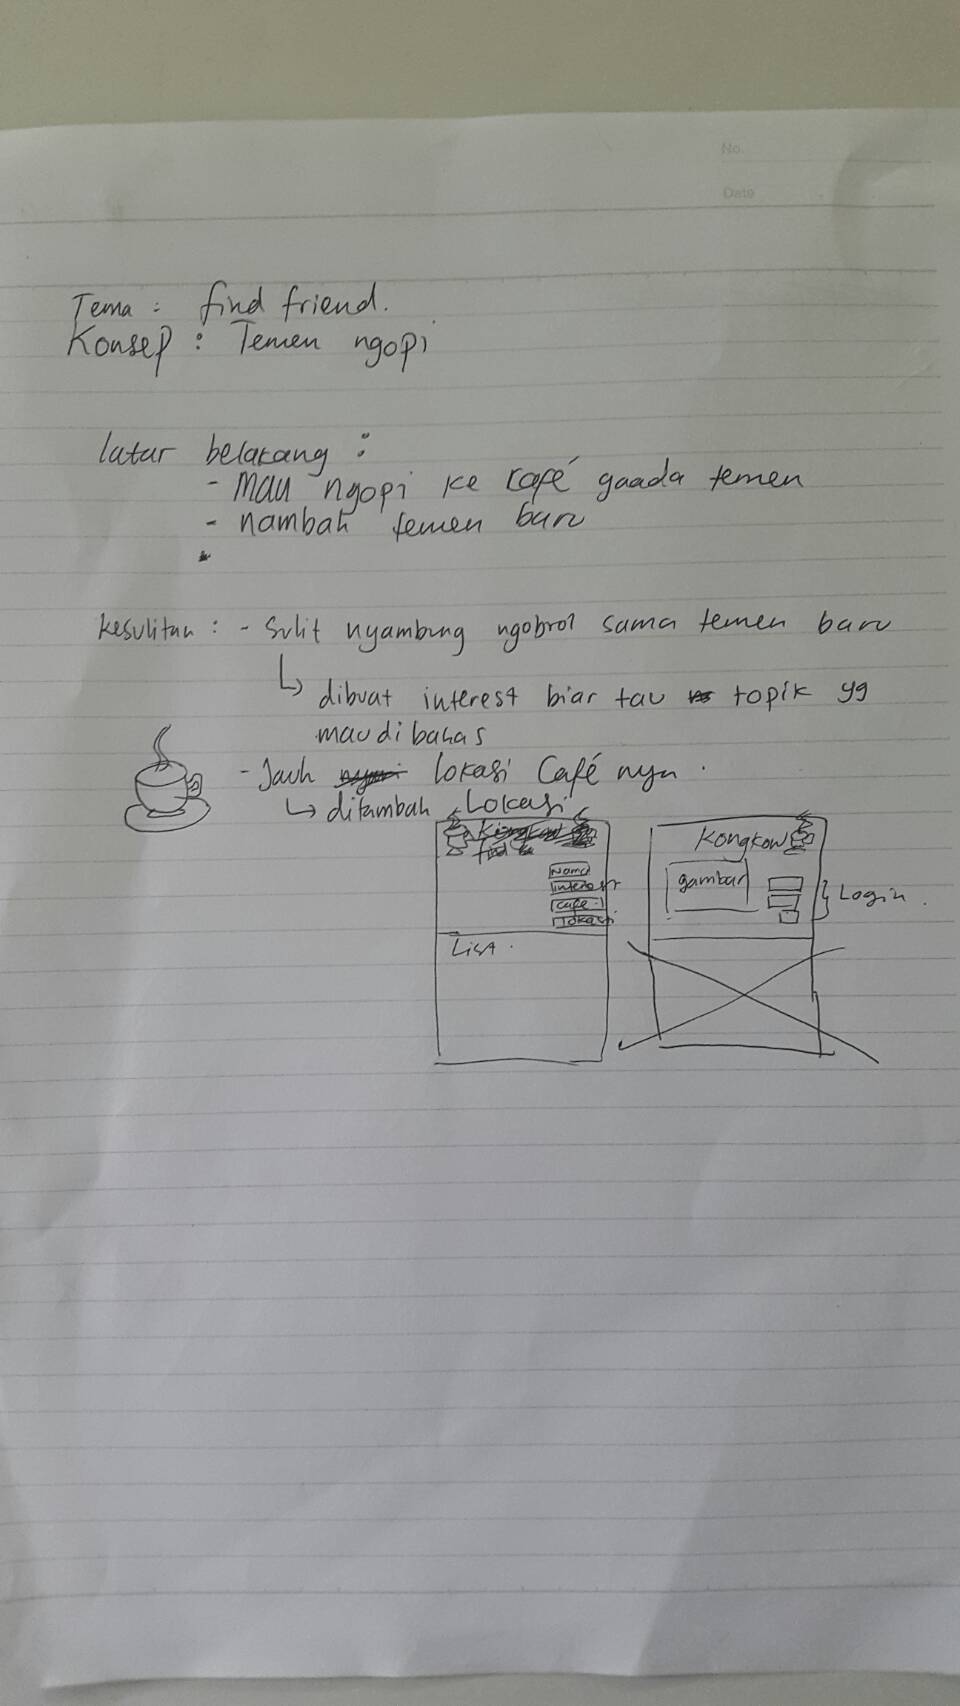 No.
Date
Tema : find friend.
Konsep : Temen ngopi
latar belakang :
- mau ngopi ke café gaada temen
- nambah temen baru
kesulitan : - Sulit nyambung ngobrol sama temen baru
↳ dibuat interest biar tau topik yg
mau di bahas
- Jauh lokasi Café nya.
↳ ditambah Lokasi
find
Nama
interest
cafe
lokasi
List.
Kongkow
gambar
Login.